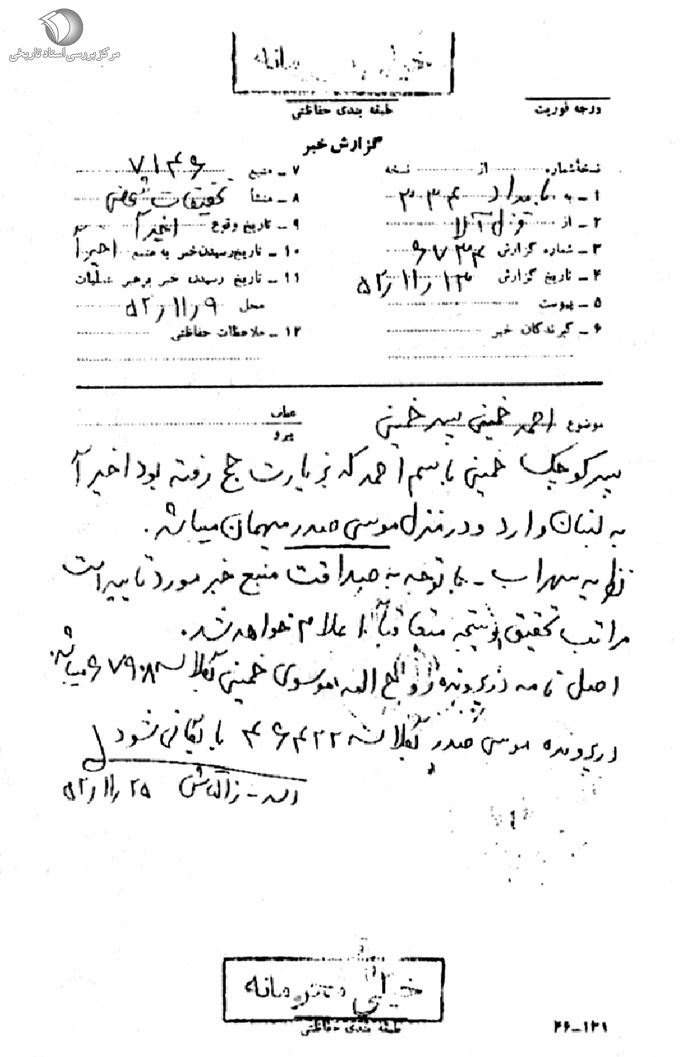 مرکز بررسی اسناد تاریخی
خیلی محرمانه
طبقه بندی حفاظتی
درجه فوریت
گزارش خبر
نسخهٔ شماره از نسخه
۱ ـ به بامداد ۳۳۴
۲ ـ از
۳ ـ شماره گزارش ۶۷۳۴
۴ ـ تاریخ گزارش ۵۲/۱۱/۱۳
۵ ـ پیوست
۶ ـ گیرندگان خبر
۷ ـ منبع ۷۱۴۶
۸ ـ منشأ تحقیقات شخصی
۹ ـ تاریخ وقوع اخیراً
۱۰ ـ تاریخ رسیدن خبر به منبع اخیراً
۱۱ ـ تاریخ رسیدن خبر برهبر عملیات
محل ۵۲/۱۱/۹
۱۲ ـ ملاحظات حفاظتی
موضوع احمد خمینی پسر خمینی
عطف
پیرو
پسر کوچک خمینی باسم احمد که بزیارت حج رفته بود اخیراً
به لبنان وارد و در منزل موسی صدر میهمان میباشد.
نظریه سهراب ـ با توجه به صداقت منبع خبر مورد تایید است
مراتب تحقیق و نتیجه متعاقباً اعلام خواهد شد.
اصل نامه در پرونده روح اله موسوی خمینی بکلاسه ۶۷۹۰۸ میباشد.
در پرونده موسی صدر بکلاسه ۴۶۴۲۲ بایگانی شود
۵۲/۱۱/۲۵
خیلی محرمانه
طبقه بندی حفاظتی
۲۶-۱۲۱